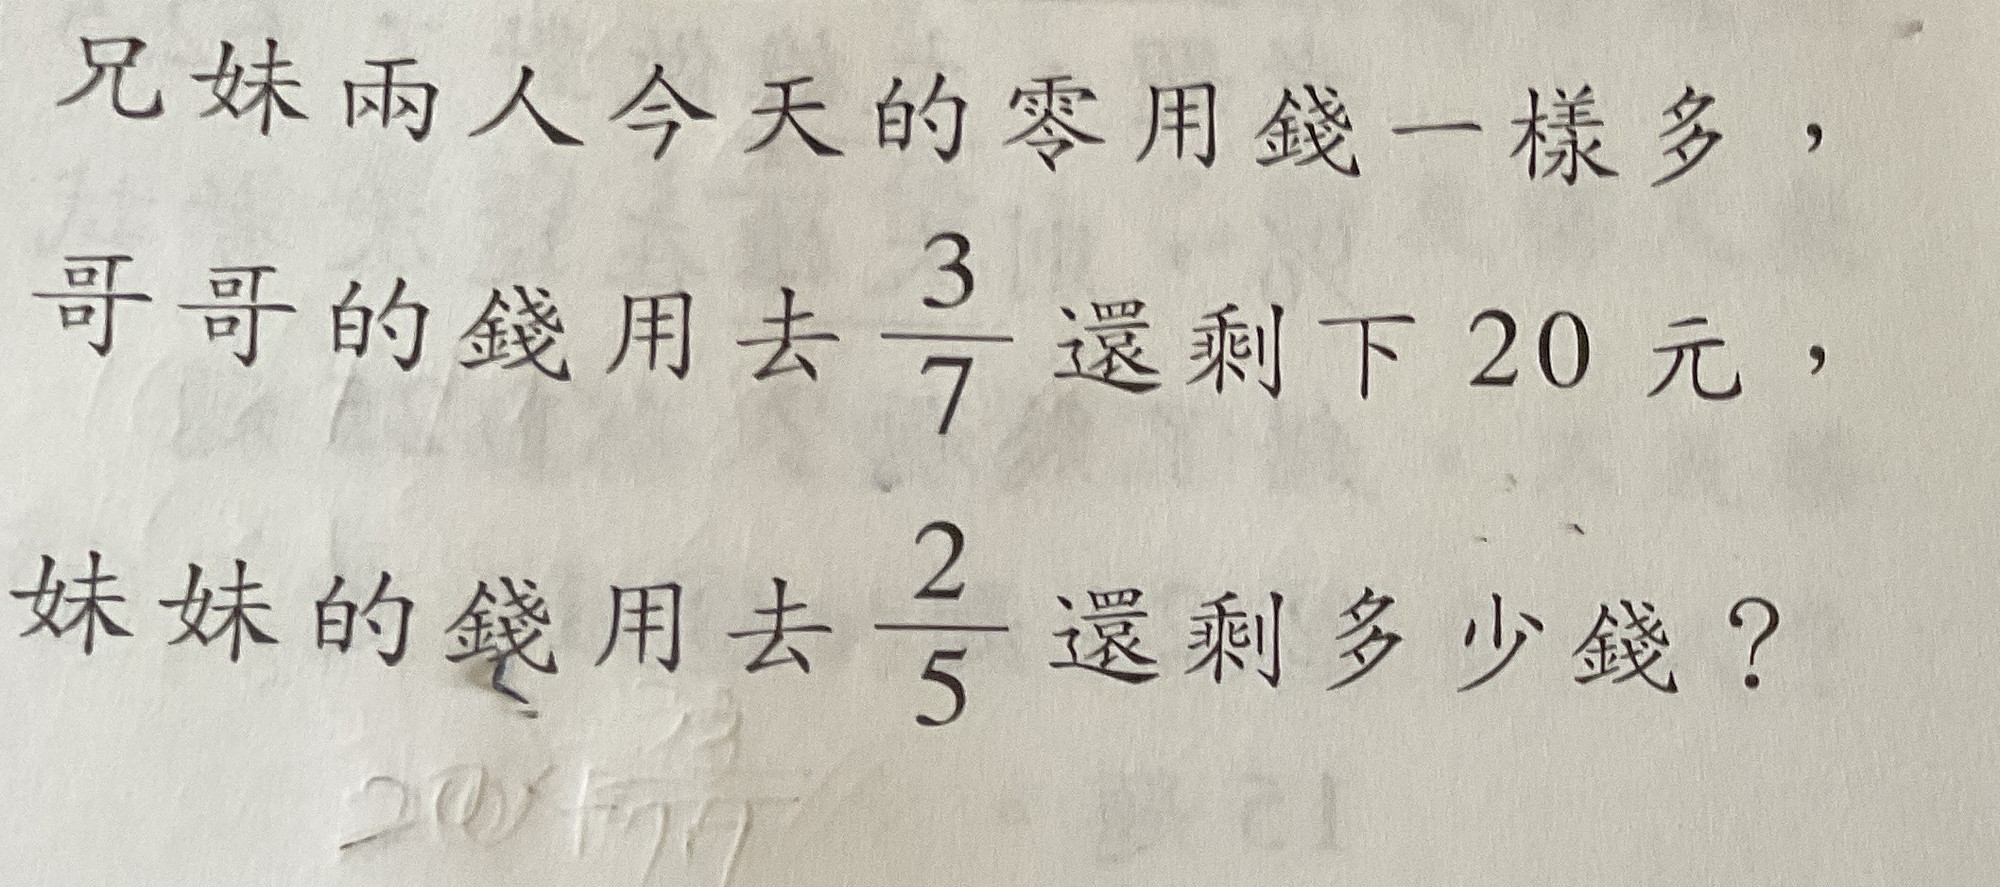 兄妹兩人今天的零用錢一樣多，
哥哥的錢用去 3/7 還剩下 20 元，
妹妹的錢用去 2/5 還剩多少錢？